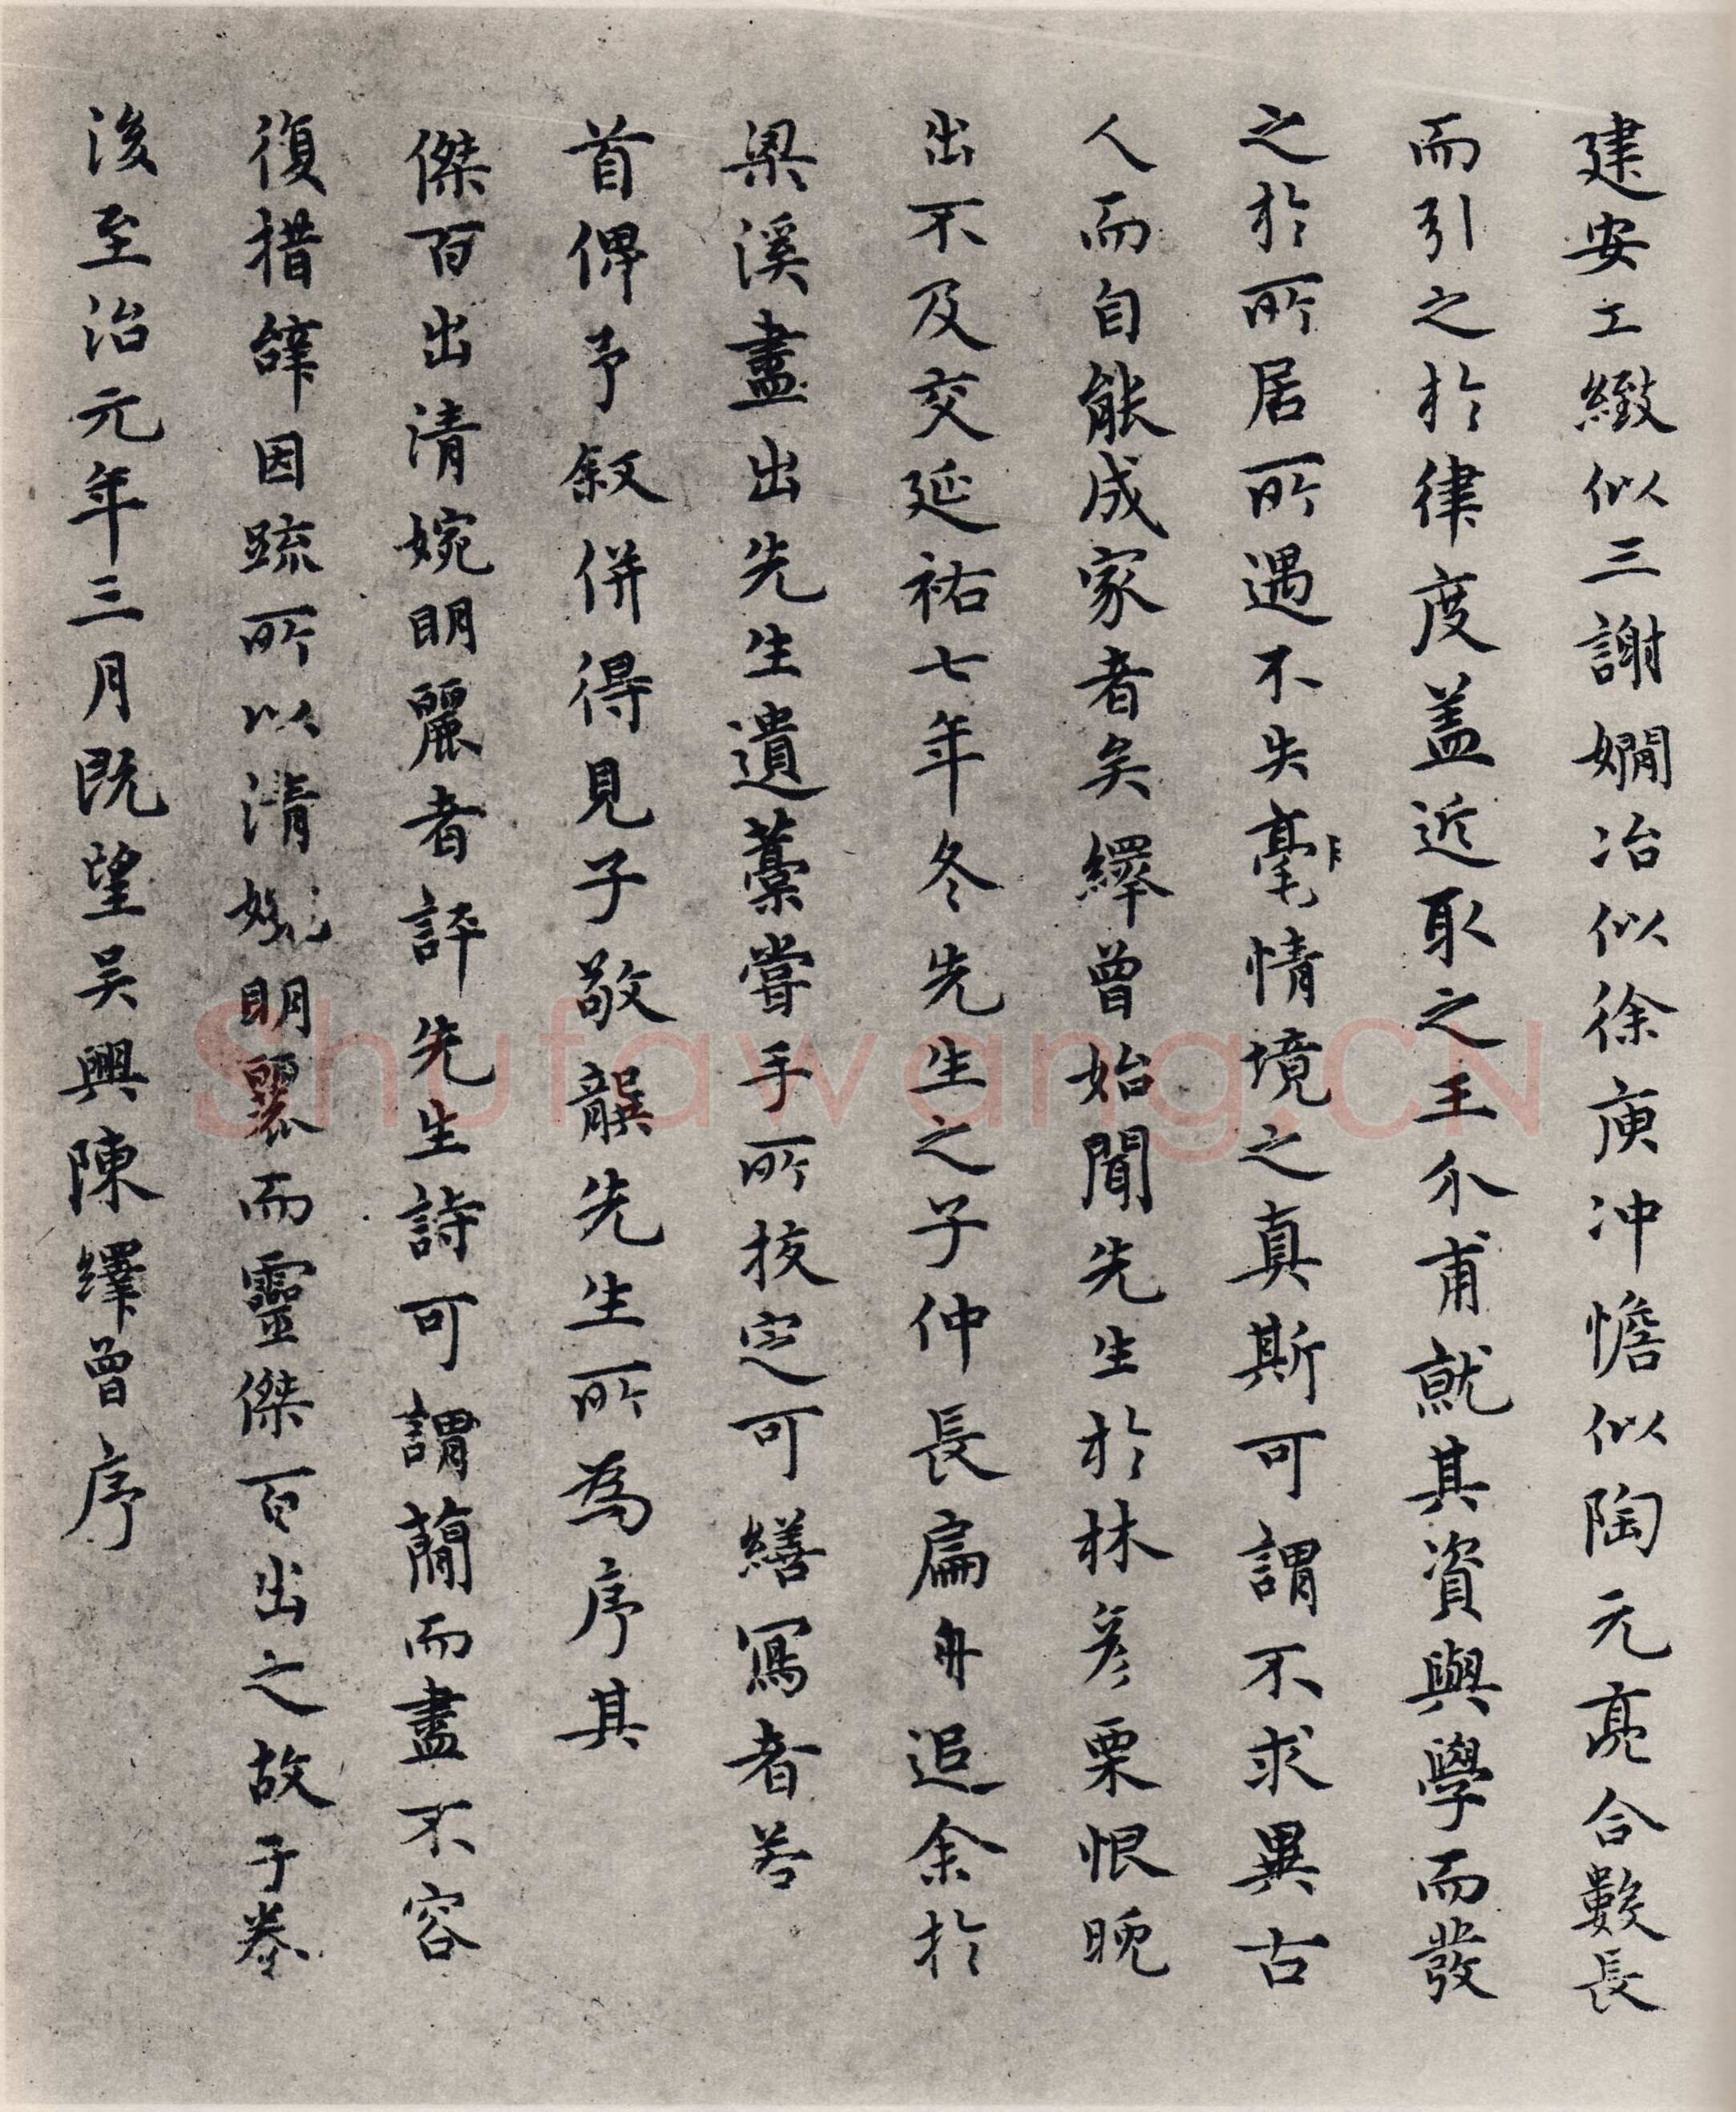 建安工緻似三謝嫺冶似徐庾沖憺似陶元亮合數長
而引之於律度蓋近取之王介甫就其資與學而發
之於所居所遇不失毫情境之真斯可謂不求異古
人而自能成家者矣繹曾始聞先生於林彥栗恨晚
出不及交延祐七年冬先生之子仲長扁舟追余於
梁溪盡出先生遺藁嘗手所挍定可繕寫者若
首俾予敘併得見子敬龔先生所為序其
傑百出清婉明麗者評先生詩可謂簡而盡不容
復措辭因疏所以清婉明麗而靈傑百出之故于卷
後至治元年三月既望吴興陳繹曾序
Shufawang.CN